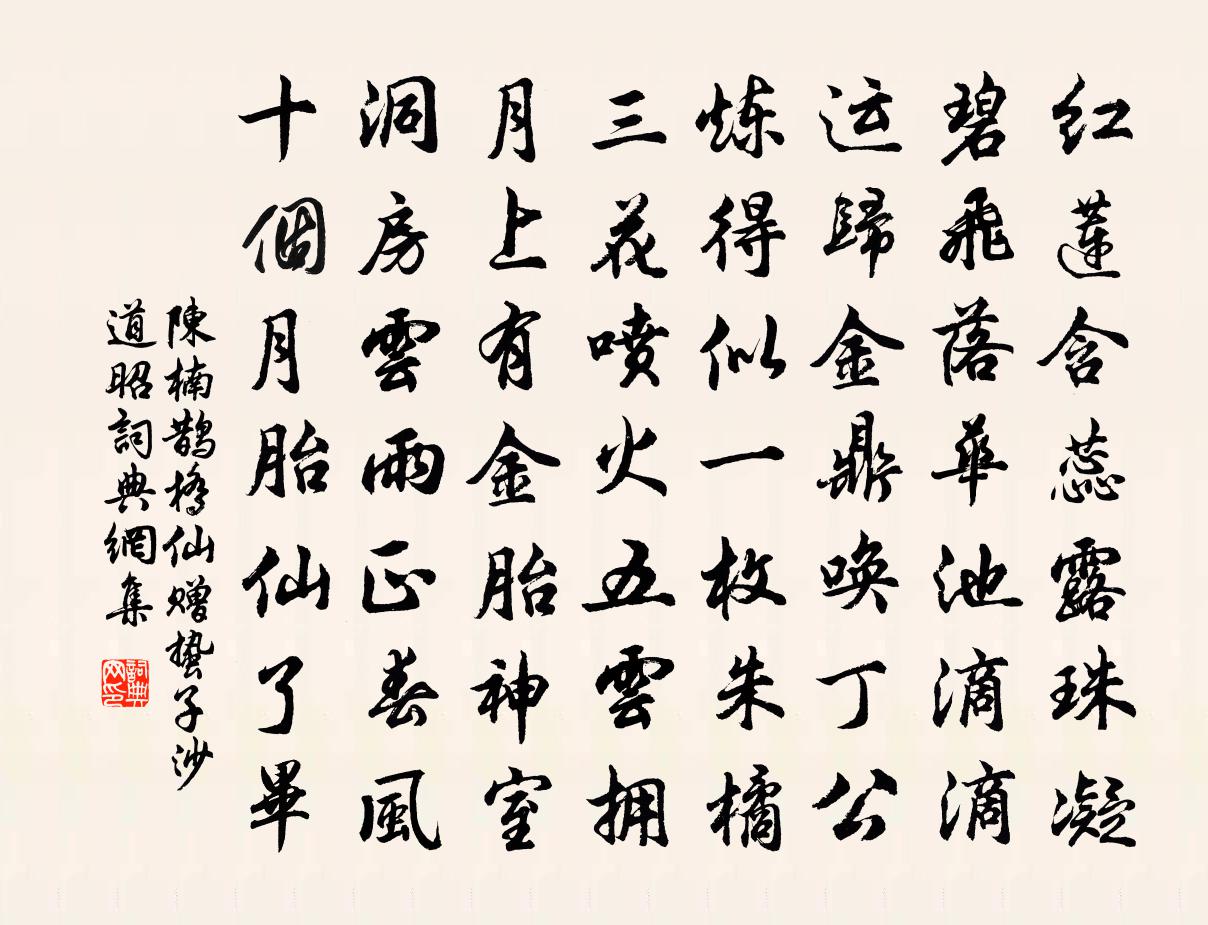 红蓮含蕊露珠凝
碧飛落華池滴滴
运歸金鼎唤丁公
炼得似一枚朱橘
三花喷火五雲拥
月上有金胎神室
洞房雲雨正春風
十個月胎仙了畢
陳楠鹊橋仙赠蛰子沙
道昭詞典網集
詞典网印